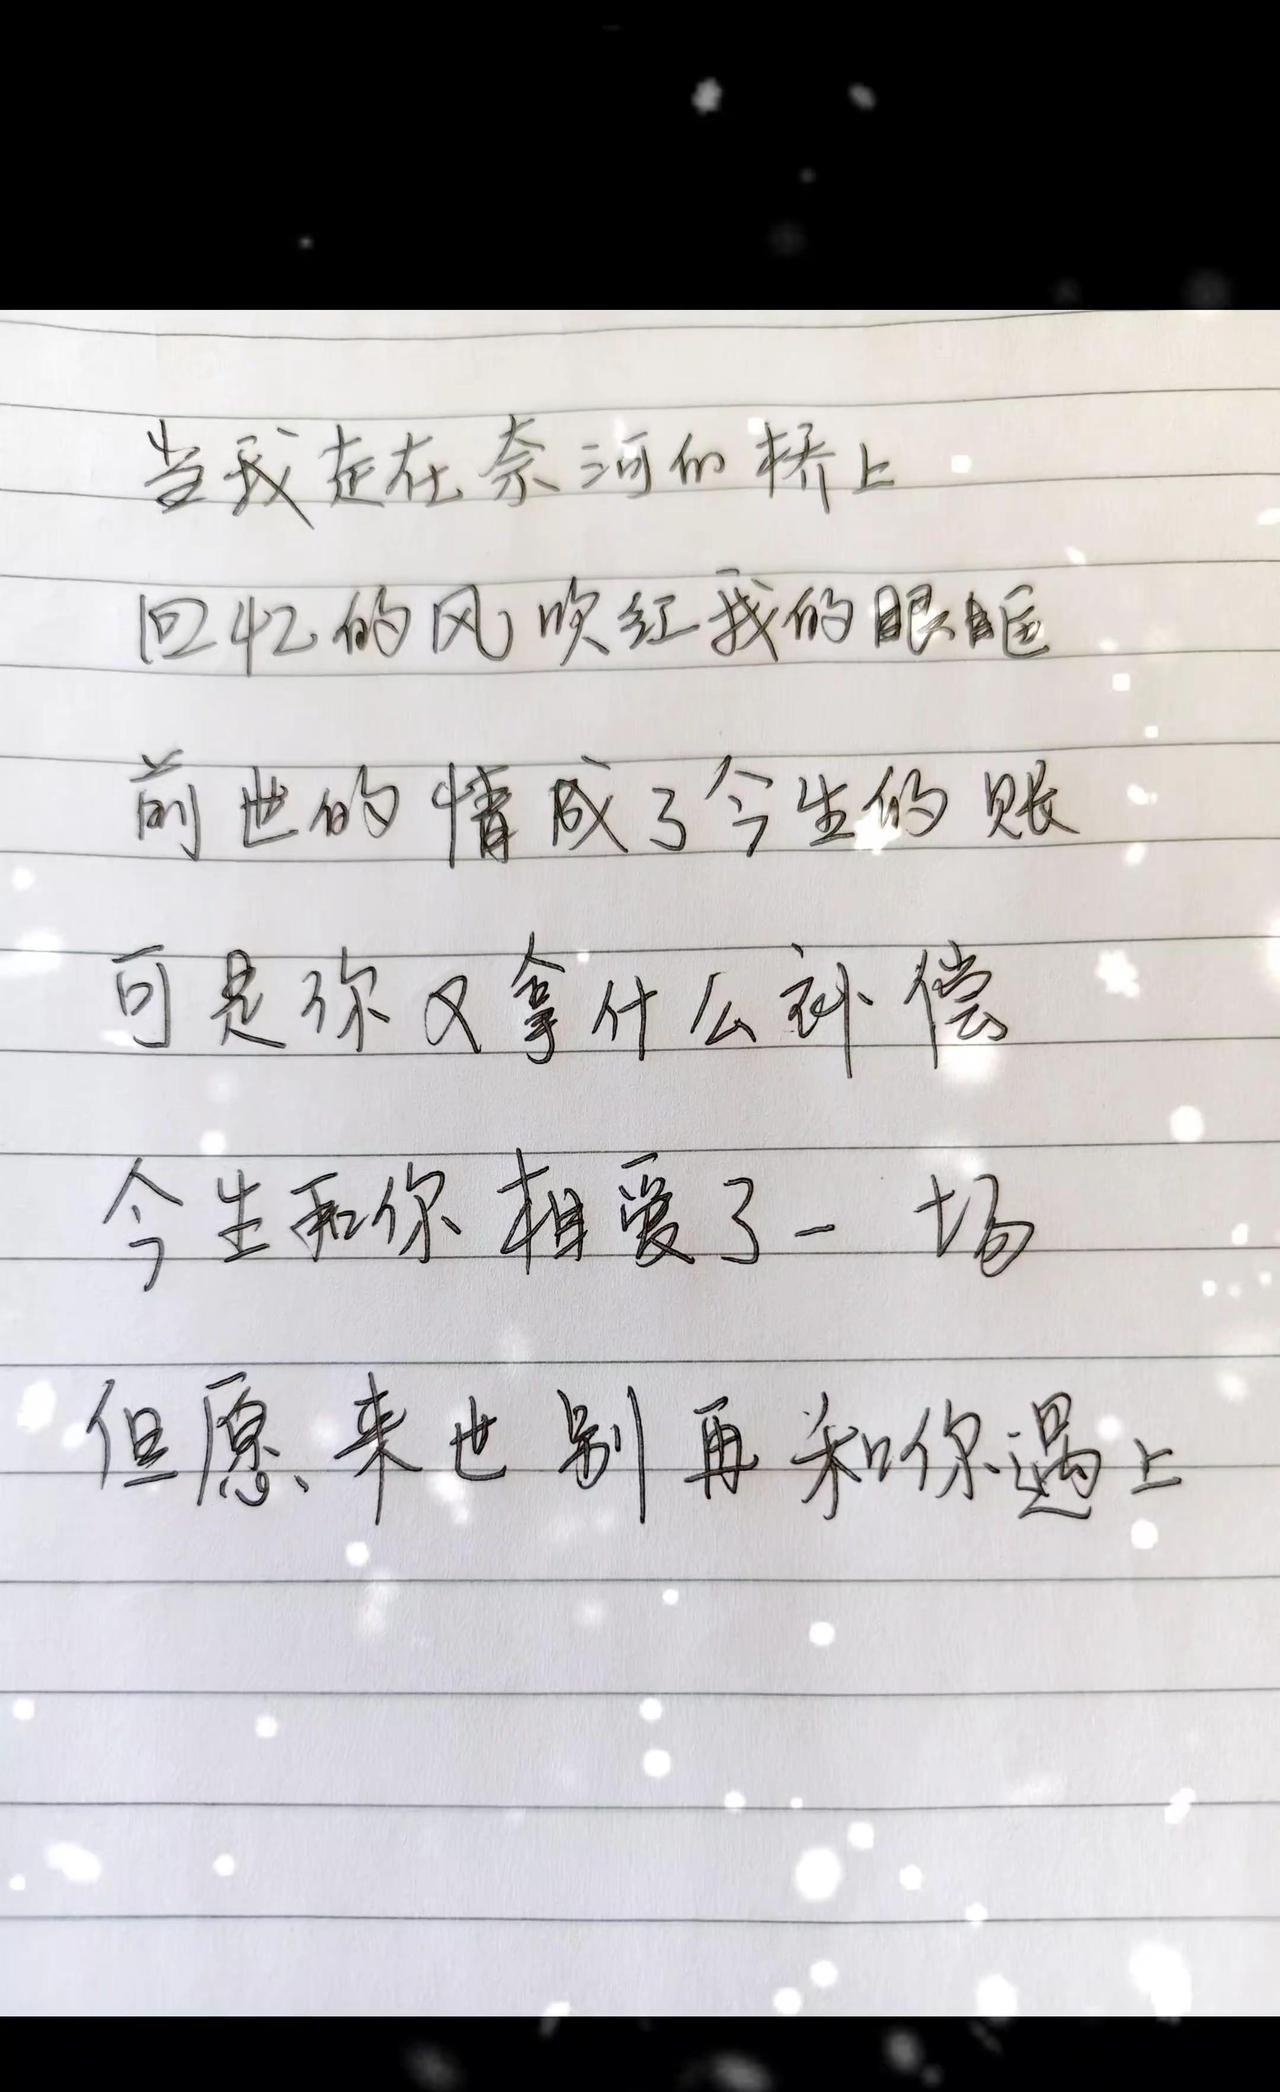 当我走在奈河的桥上
回忆的风吹红我的眼眶
前世的情成了今生的账
可是你又拿什么补偿
今生和你相爱了一场
但愿来世别再和你遇上